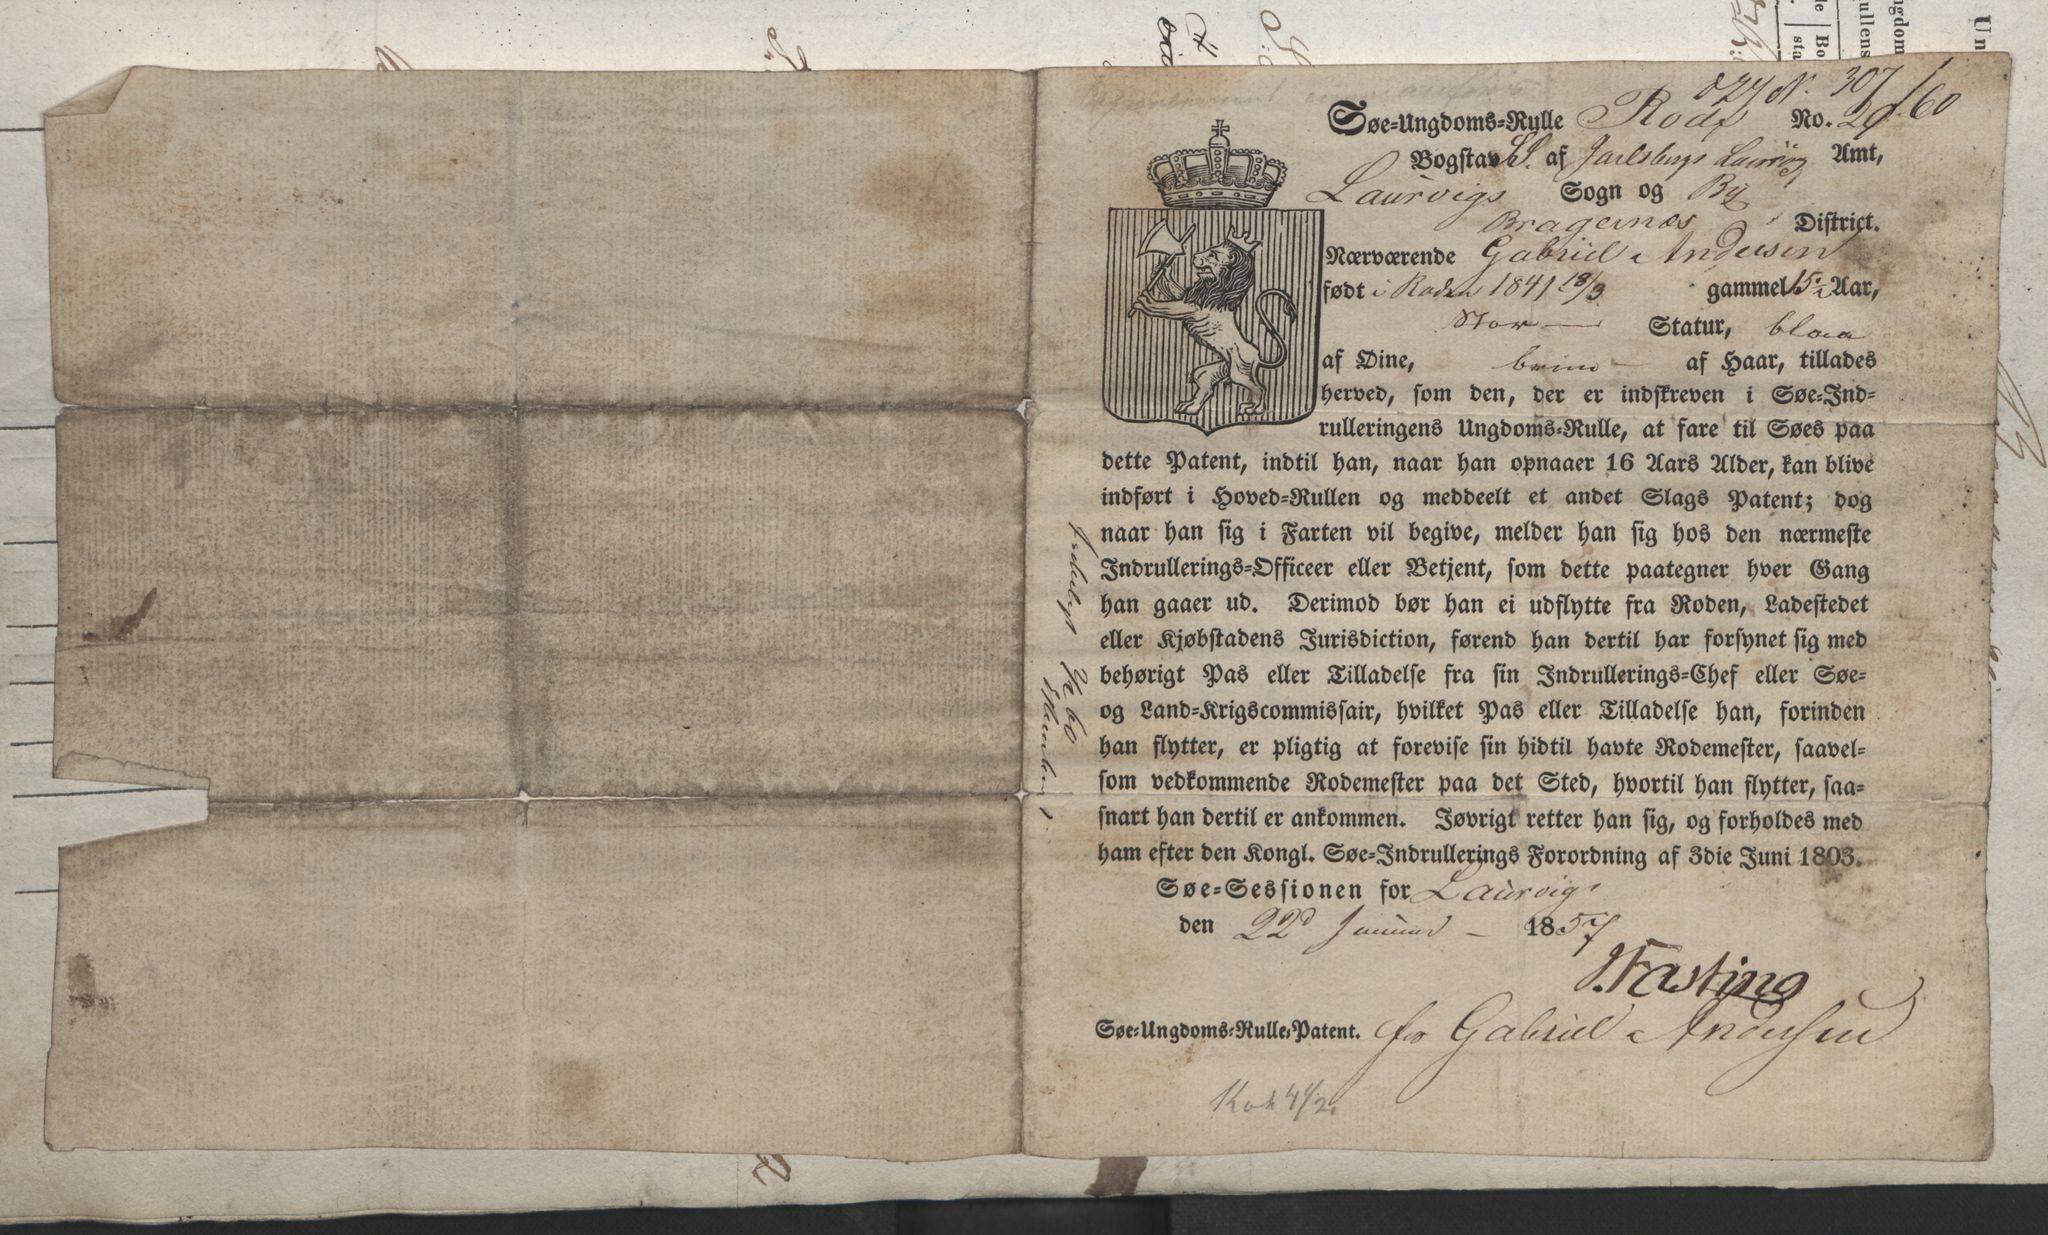 Søe-Ungdoms-Rulle Rode No. 29 /60
307
Bogstav af Jarlsbergs Laurvigs Amt,
Laurvigs Sogn og By
Bragernæs District.
Nærværende Gabriel Andersen
født i Roden 1841 18/3 gammel 15 Aar,
Stor — Statur, blaa
af Øine, bruun — af Haar, tillades
herved, som den, der er indskreven i Søe-Ind-
rulleringens Ungdoms-Rulle, at fare til Søes paa
dette Patent, indtil han, naar han opnaaer 16 Aars Alder, kan blive
indført i Hoved-Rullen og meddeelt et andet Slags Patent; dog
naar han sig i Farten vil begive, melder han sig hos den nærmeste
Indrullerings-Officeer eller Betjent, som dette paategner hver Gang
han gaaer ud. Derimod bør han ei udflytte fra Roden, Ladestedet
eller Kjøbstadens Jurisdiction, førend han dertil har forsynet sig med
behørigt Pas eller Tilladelse fra sin Indrullerings-Chef eller Søe-
og Land-Krigscommissair, hvilket Pas eller Tilladelse han, forinden
han flytter, er pligtig at forevise sin hidtil havte Rodemester, saavel-
som vedkommende Rodemester paa det Sted, hvortil han flytter, saa-
snart han dertil er ankommen. Iøvrigt retter han sig, og forholdes med
ham efter den Kongl. Søe-Indrullerings Forordning af 3die Juni 1803.
Søe-Sessionen for Laurvigs
den 22d Januar — 1857
Fasting
Søe-Ungdoms-Rulle-Patent. for Gabriel Andersen